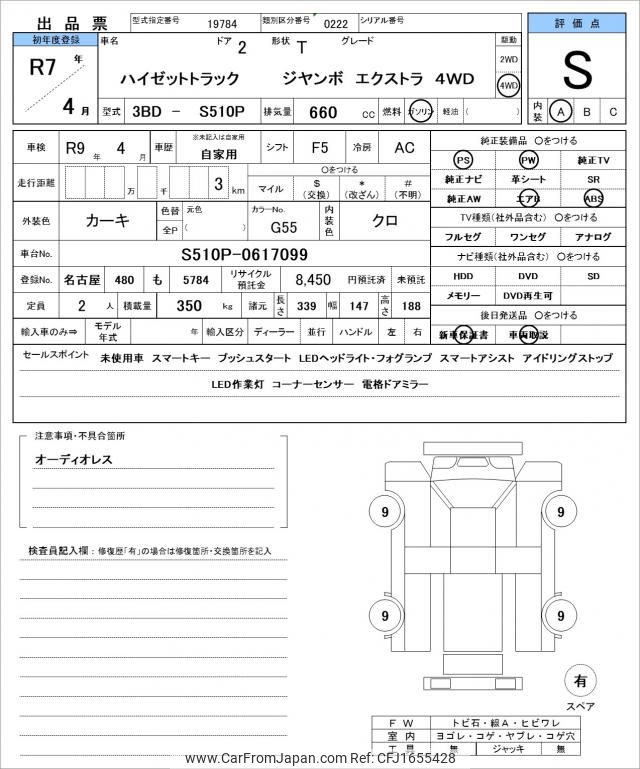 出品票 型式指定番号 19784 類別区分番号 0222 シリアル番号
評価点
S
内装 A B C
初年度登録
R7 年
4 月
車名 ドア 2 形状 T グレード
ハイゼットトラック ジヤンボ エクストラ 4WD
駆動
2WD
4WD
型式 3BD - S510P 排気量 660 cc 燃料 ガソリン 軽油 ( )
車検 R9 年 4 月 車歴 ※未記入は自家用 自家用 シフト F5 冷房 AC
走行距離 万 千 3 km
〇をつける
マイル $ (交換) * (改ざん) # (不明)
外装色 カーキ 色替 全P 元色 ( ) カラーNo. G55 内装色 クロ
車台No. S510P-0617099
登録No. 名古屋 480 も 5784 リサイクル預託金 8,450 円預託済 未預託
定員 2 人 積載量 350 kg 諸元 長さ 339 幅 147 高さ 188
輸入車のみ⇒ モデル年式 年 輸入区分 ディーラー 並行 ハンドル 左 右
純正装備品 〇をつける
PS PW 純正TV
純正ナビ 革シート SR
純正AW エアB ABS
TV種類(社外品含む) 〇をつける
フルセグ ワンセグ アナログ
ナビ種類(社外品含む) 〇をつける
HDD DVD SD
メモリー DVD再生可
後日発送品 〇をつける
新車保証書 車両取説
セールスポイント 未使用車 スマートキー プッシュスタート LEDヘッドライト・フォグランプ スマートアシスト アイドリングストップ
LED作業灯 コーナーセンサー 電格ドアミラー
注意事項・不具合箇所
オーディオレス
検査員記入欄：修復歴「有」の場合は修復箇所・交換箇所を記入
9 9
9 9
有
スペア
FW トビ石・線A・ヒビワレ
室内 ヨゴレ・コゲ・ヤブレ・コゲ穴
工具 無 ジャッキ 無
www.CarFromJapan.com Ref: CFJ1655428